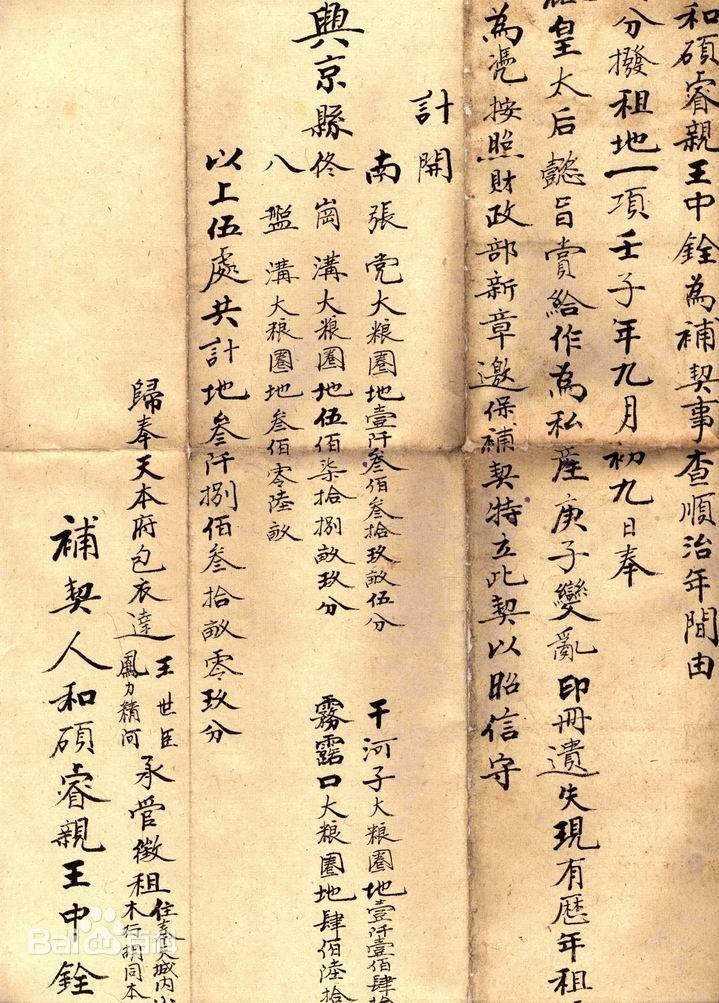 和碩睿親王中銓為補契事查順治年間由
分撥租地一項壬子年九月初九日奉
皇太后懿旨賞給作為私產庚子變亂印冊遺失現有歷年租
為凴按照財政部新章邀保補契特立此契以昭信守
計開
南張党大粮圈地壹阡叁佰叁拾玖畝伍分 干河子大粮圈地壹阡壹佰肆拾
興京縣佟崗溝大粮圈地伍佰柒拾捌畝玖分 霧露口大粮圈地肆佰陸拾
八盤溝大粮圈地叁佰零陸畝
以上伍處共計地叁阡捌佰叁拾畝零玖分
歸奉天本府包衣達王世臣鳳力精阿承管徵租住奉天城內小木行胡同本
補契人和碩睿親王中銓
Bai